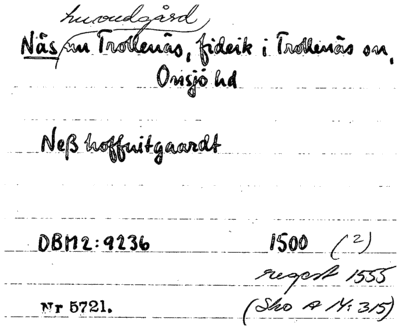 huvudgård
Näs nu Trollenäs, fideik i Trollenäs sn,
Onsjö hd
Neß hoffuitgaardt
DBM2:9236 1500 (2)
regest 1555
Nr 5721. (Sko A Nr 315)